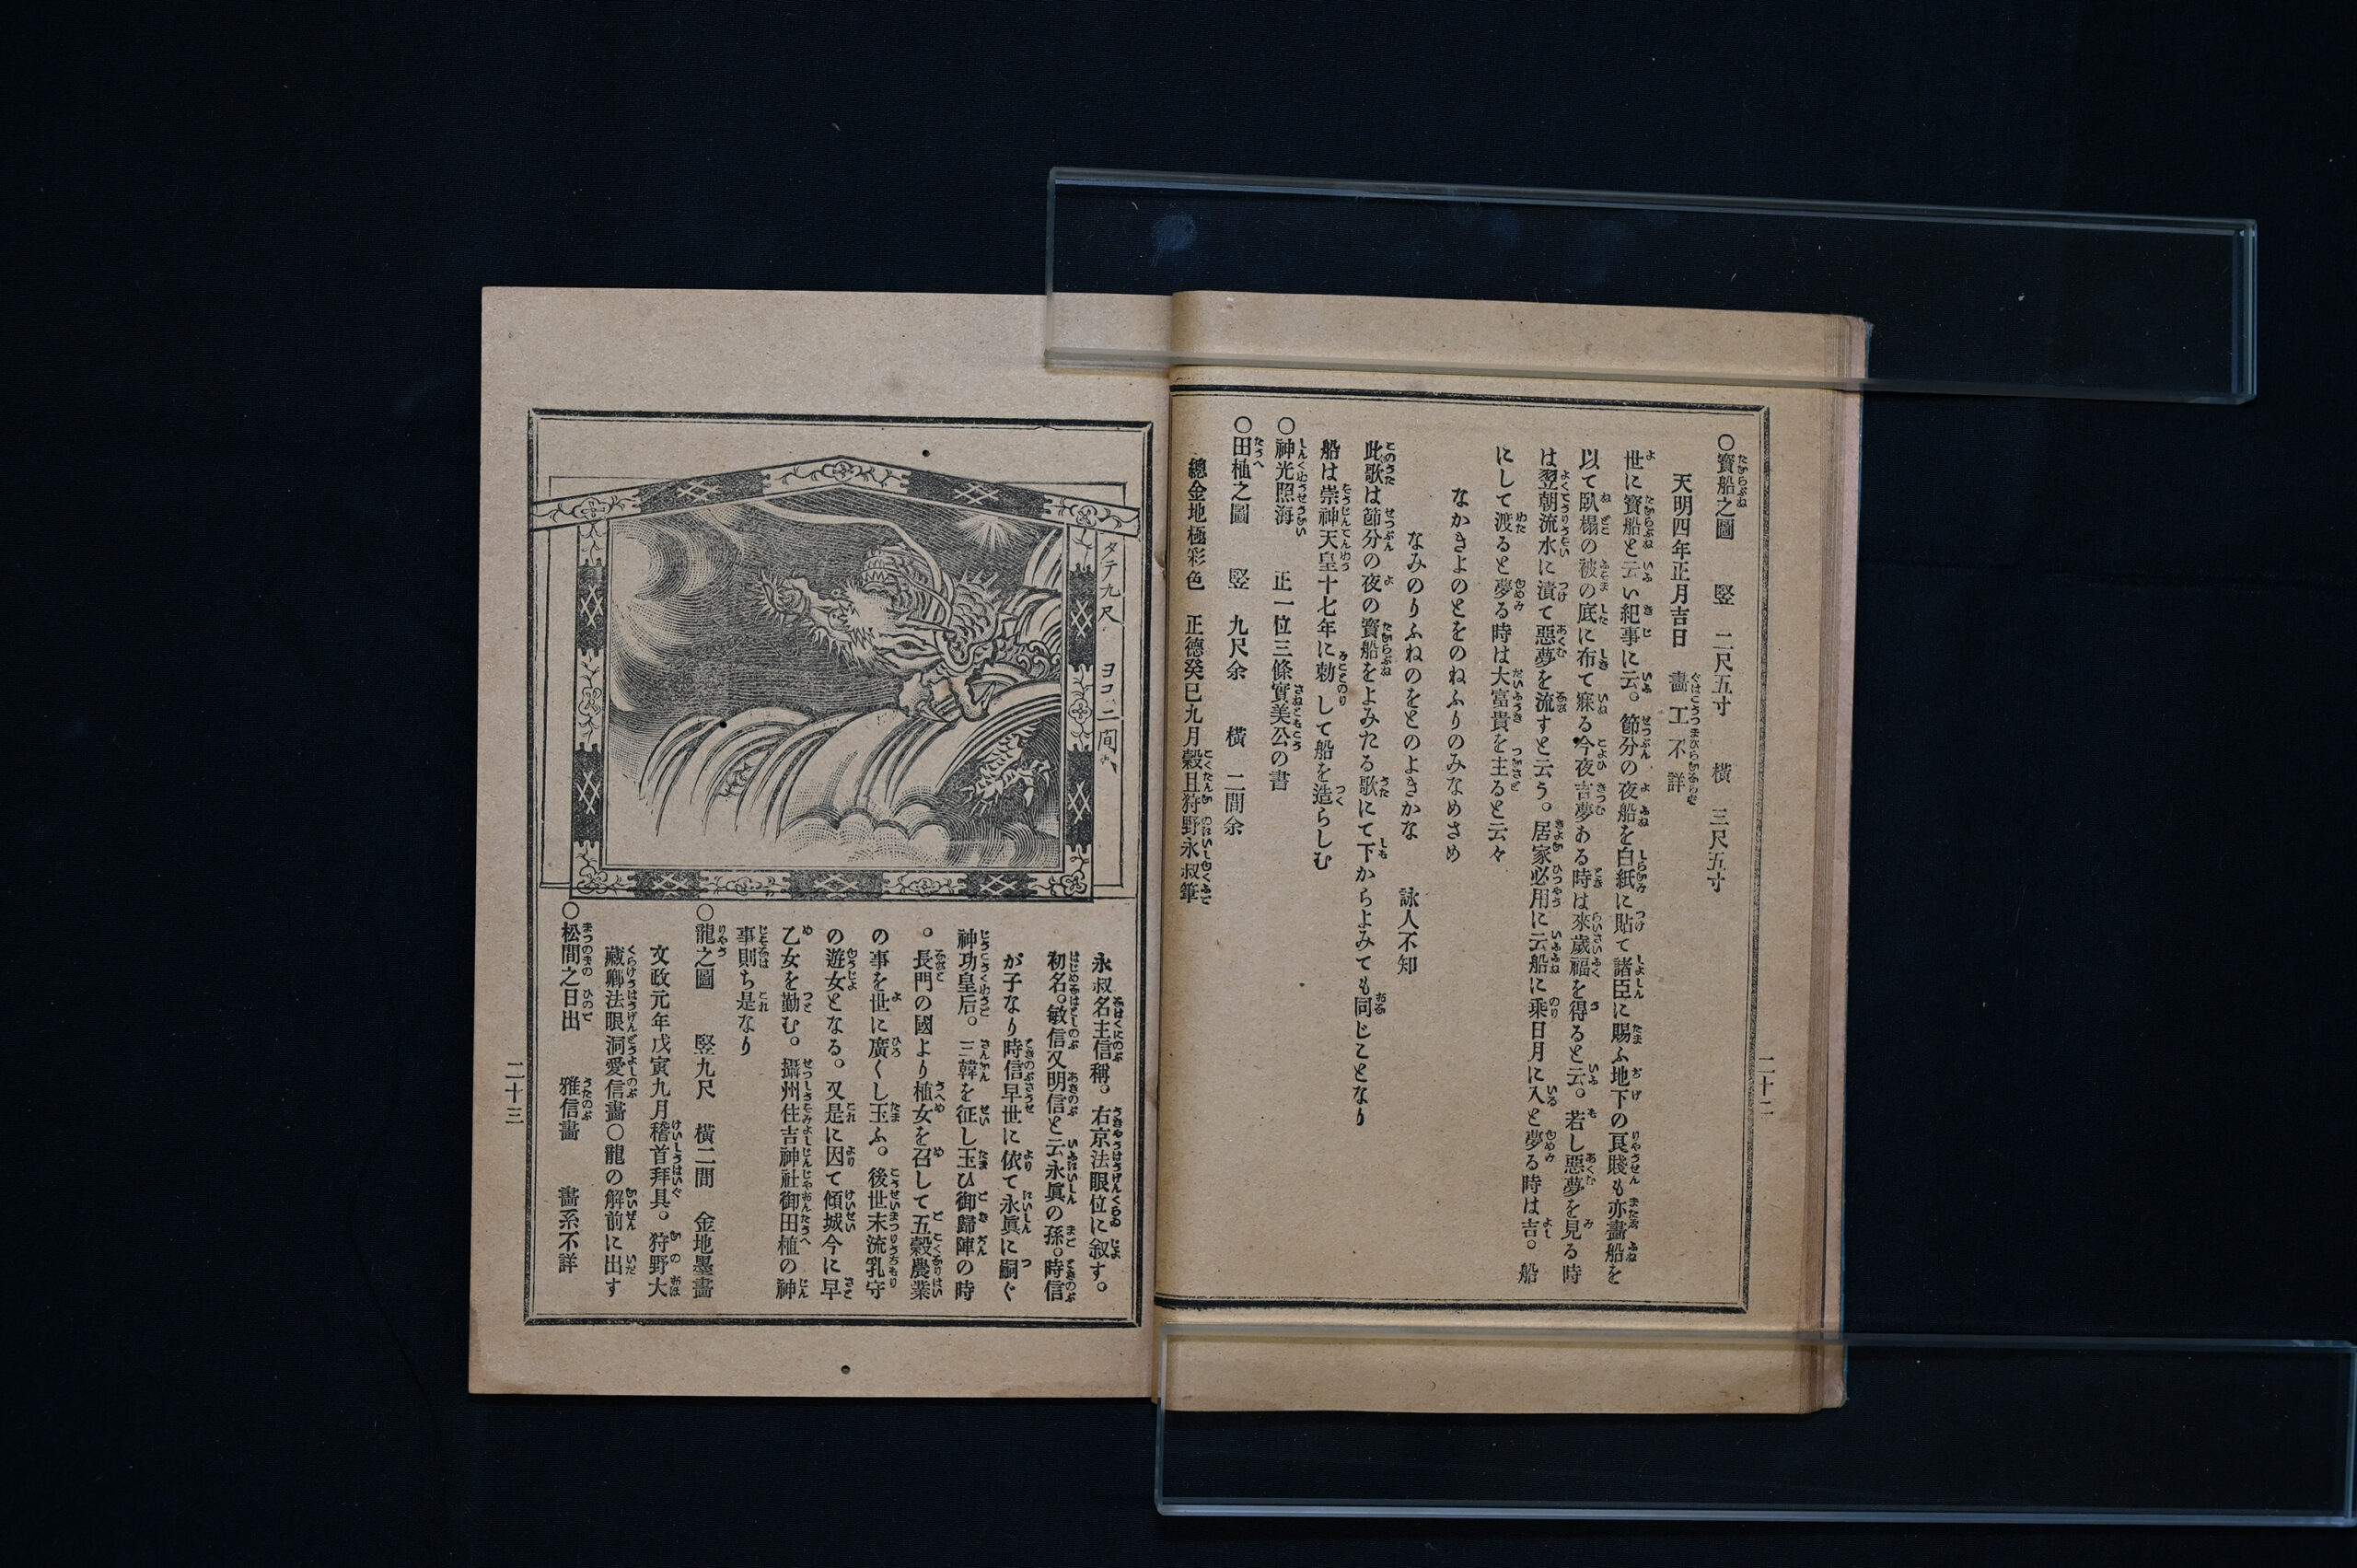 ○寳船之圖　竪　二尺五寸　横　三尺五寸
天明四年正月吉日　畵工不詳
世に寳船と云い紀事に云。節分の夜船を白紙に貼て諸臣に賜ふ地下の良賤も亦畵船を
以て臥榻の被の底に布て寐る今夜吉夢ある時は來歲福を得ると云。若し惡夢を見る時
は翌朝流水に漬て惡夢を流すと云う。居家必用に云船に乘日月に入と夢る時は吉。船
にして渡ると夢る時は大富貴を主ると云々
なかきよのとをのねふりのみなめさめ
なみのりふねのをとのよきかな　詠人不知
此歌は節分の夜の寳船をよみたる歌にて下からよみても同じことなり
船は崇神天皇十七年に勅して船を造らしむ
○神光照海　正一位三條實美公の書
○田植之圖　竪　九尺余　橫　二間余
總金地極彩色　正德癸巳九月穀旦狩野永叔筆
二十二
タテ九尺　ヨコ二間
永叔名主信稱。右京法眼位に叙す。
初名。敏信又明信と云永眞の孫。時信
が子なり時信早世に依て永眞に嗣ぐ
神功皇后。三韓を征し玉ひ御歸陣の時
。長門の國より植女を召して五穀農業
の事を世に廣くし玉ふ。後世末流乳守
の遊女となる。又是に因て傾城今に早
乙女を勤む。攝州住吉神社御田植の神
事則ち是なり
○龍之圖　竪九尺　橫二間　金地墨畵
文政元年戊寅九月稽首拜具。狩野大
藏卿法眼洞愛信畵○龍の解前に出す
○松間之日出　雅信畵　畵系不詳
二十三